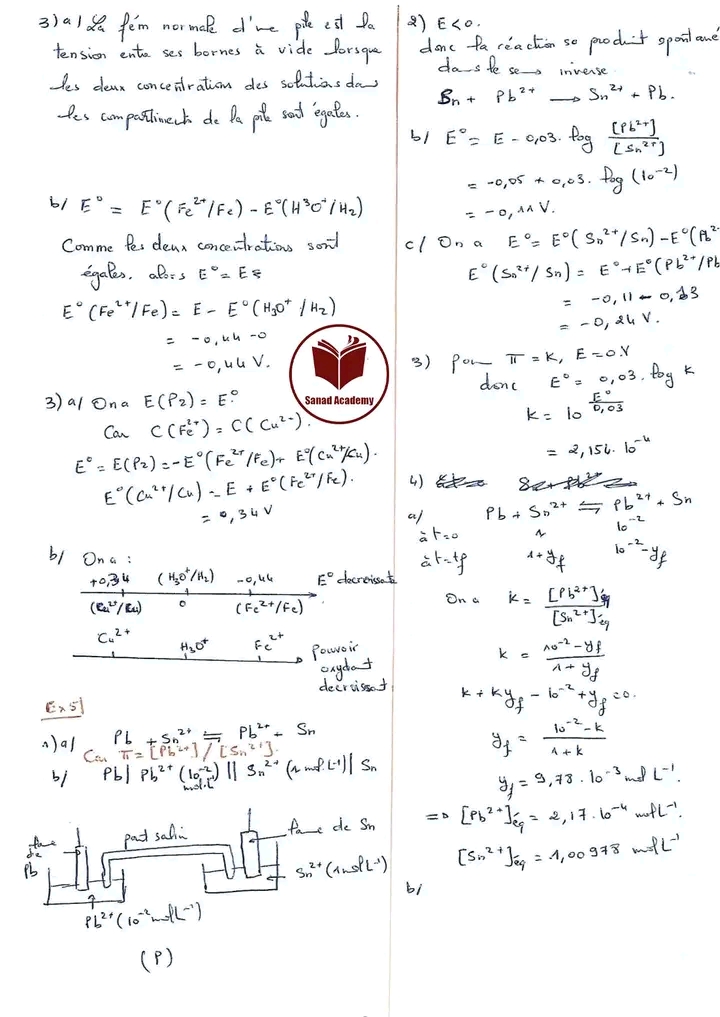 3) a/ La fém normale d'une pile est la
tension entre ses bornes à vide lorsque
les deux concentrations des solutions dans
les compartiments de la pile sont égales.
b/ E° = E°(Fe²⁺/Fe) - E°(H³O⁺/H₂)
Comme les deux concentrations sont
égales. alors E° = E
E°(Fe²⁺/Fe) = E - E°(H₃O⁺/H₂)
= -0,44 -0
= -0,44 V.
3) a/ On a E(P2) = E°
Car C(Fe²⁺) = C(Cu²⁺).
E° = E(P2) = -E°(Fe²⁺/Fe) + E°(Cu²⁺/Cu).
E°(Cu²⁺/Cu) = E + E°(Fe²⁺/Fe).
= 0,34 V
b/ On a :
+0,34 (H₃O⁺/H₂) -0,44 E° decroissante
(Cu²⁺/Cu) 0 (Fe²⁺/Fe)
Cu²⁺ H₃O⁺ Fe²⁺ pouvoir
oxydant
decroissant
Ex 5
1) a/ Pb + Sn²⁺ ⇋ Pb²⁺ + Sn
Car π = [Pb²⁺] / [Sn²⁺].
b/ Pb | Pb²⁺ (10⁻² mol.L⁻¹) || Sn²⁺ (1 mol.L⁻¹) | Sn
lame de Pb
pont salin
lame de Sn
Sn²⁺ (1 mol L⁻¹)
Pb²⁺ (10⁻² mol L⁻¹)
(P)
Sanad Academy
2) E < 0.
donc la réaction se produit spontané
dans le sens inverse
Sn + Pb²⁺ → Sn²⁺ + Pb.
b/ E° = E - 0,03. log [Pb²⁺]/[Sn²⁺]
= -0,05 + 0,03. log (10⁻²)
= -0,11 V.
c/ On a E° = E°(Sn²⁺/Sn) - E°(Pb²⁻
E°(Sn²⁺/Sn) = E° + E°(Pb²⁺/Pb
= -0,11 - 0,13
= -0,24 V.
3) pour π = K, E = 0.V
donc E° = 0,03. log K
K = 10^(E°/0,03)
= 2,154. 10⁻⁴
4)
a/ Pb + Sn²⁺ ⇋ Pb²⁺ + Sn
à t=0 1 10⁻²
à t=tf 1+yf 10⁻²-yf
On a K = [Pb²⁺]éq/[Sn²⁺]éq
K = (10⁻²-yf)/(1+yf)
K + Kyf - 10⁻² + yf = 0.
yf = (10⁻²-K)/(1+K)
yf = 9,78. 10⁻³ mol L⁻¹.
=> [Pb²⁺]éq = 2,17. 10⁻⁴ mol L⁻¹.
[Sn²⁺]éq = 1,00978 mol L⁻¹
b/